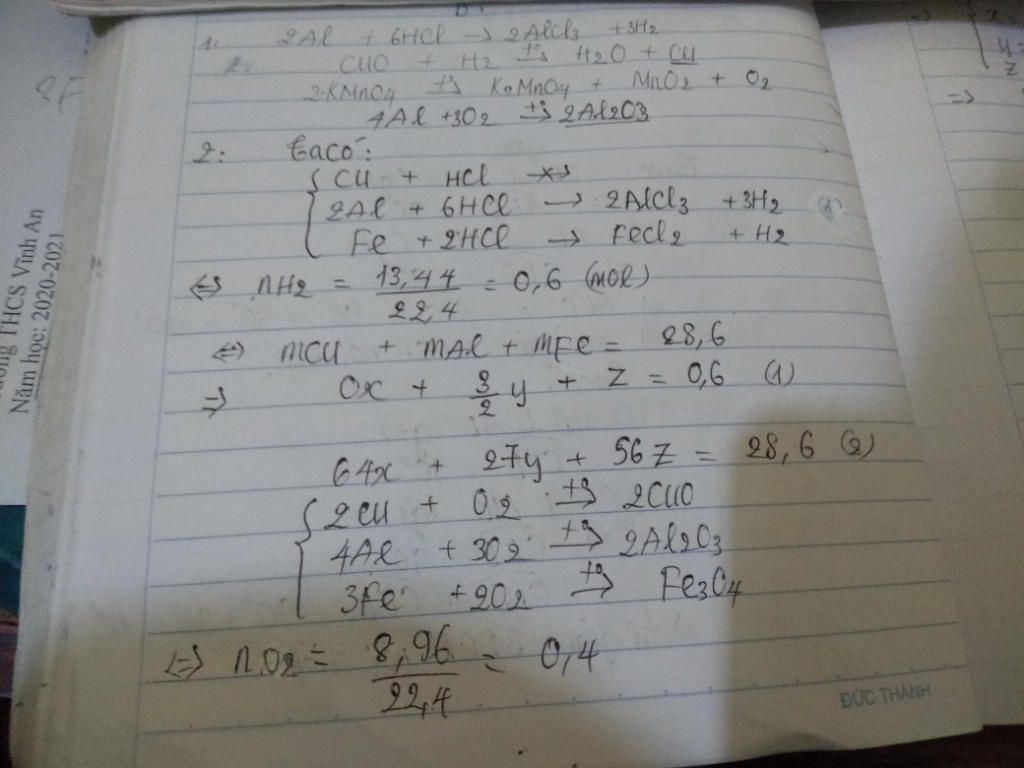 1. 2Al + 6HCl → 2AlCl3 + 3H2
2. CuO + H2 t°→ H2O + Cu
2KMnO4 t°→ K2MnO4 + MnO2 + O2
4Al + 3O2 t°→ 2Al2O3
2: Ta có:
{ Cu + HCl -x→
2Al + 6HCl → 2AlCl3 + 3H2
Fe + 2HCl → FeCl2 + H2
⇔ nH2 = 13,44/22,4 = 0,6 (mol)
⇔ mCu + mAl + mFe = 28,6
⇒ 0x + 3/2 y + z = 0,6 (1)
64x + 27y + 56z = 28,6 (2)
{ 2Cu + O2 t°→ 2CuO
4Al + 3O2 t°→ 2Al2O3
3Fe + 2O2 t°→ Fe3O4
⇔ nO2 = 8,96/22,4 = 0,4
ĐỨC THÀNH
THCS Vĩnh An
Năm học: 2020-2021
⇒ { x =
y =
z
⇒